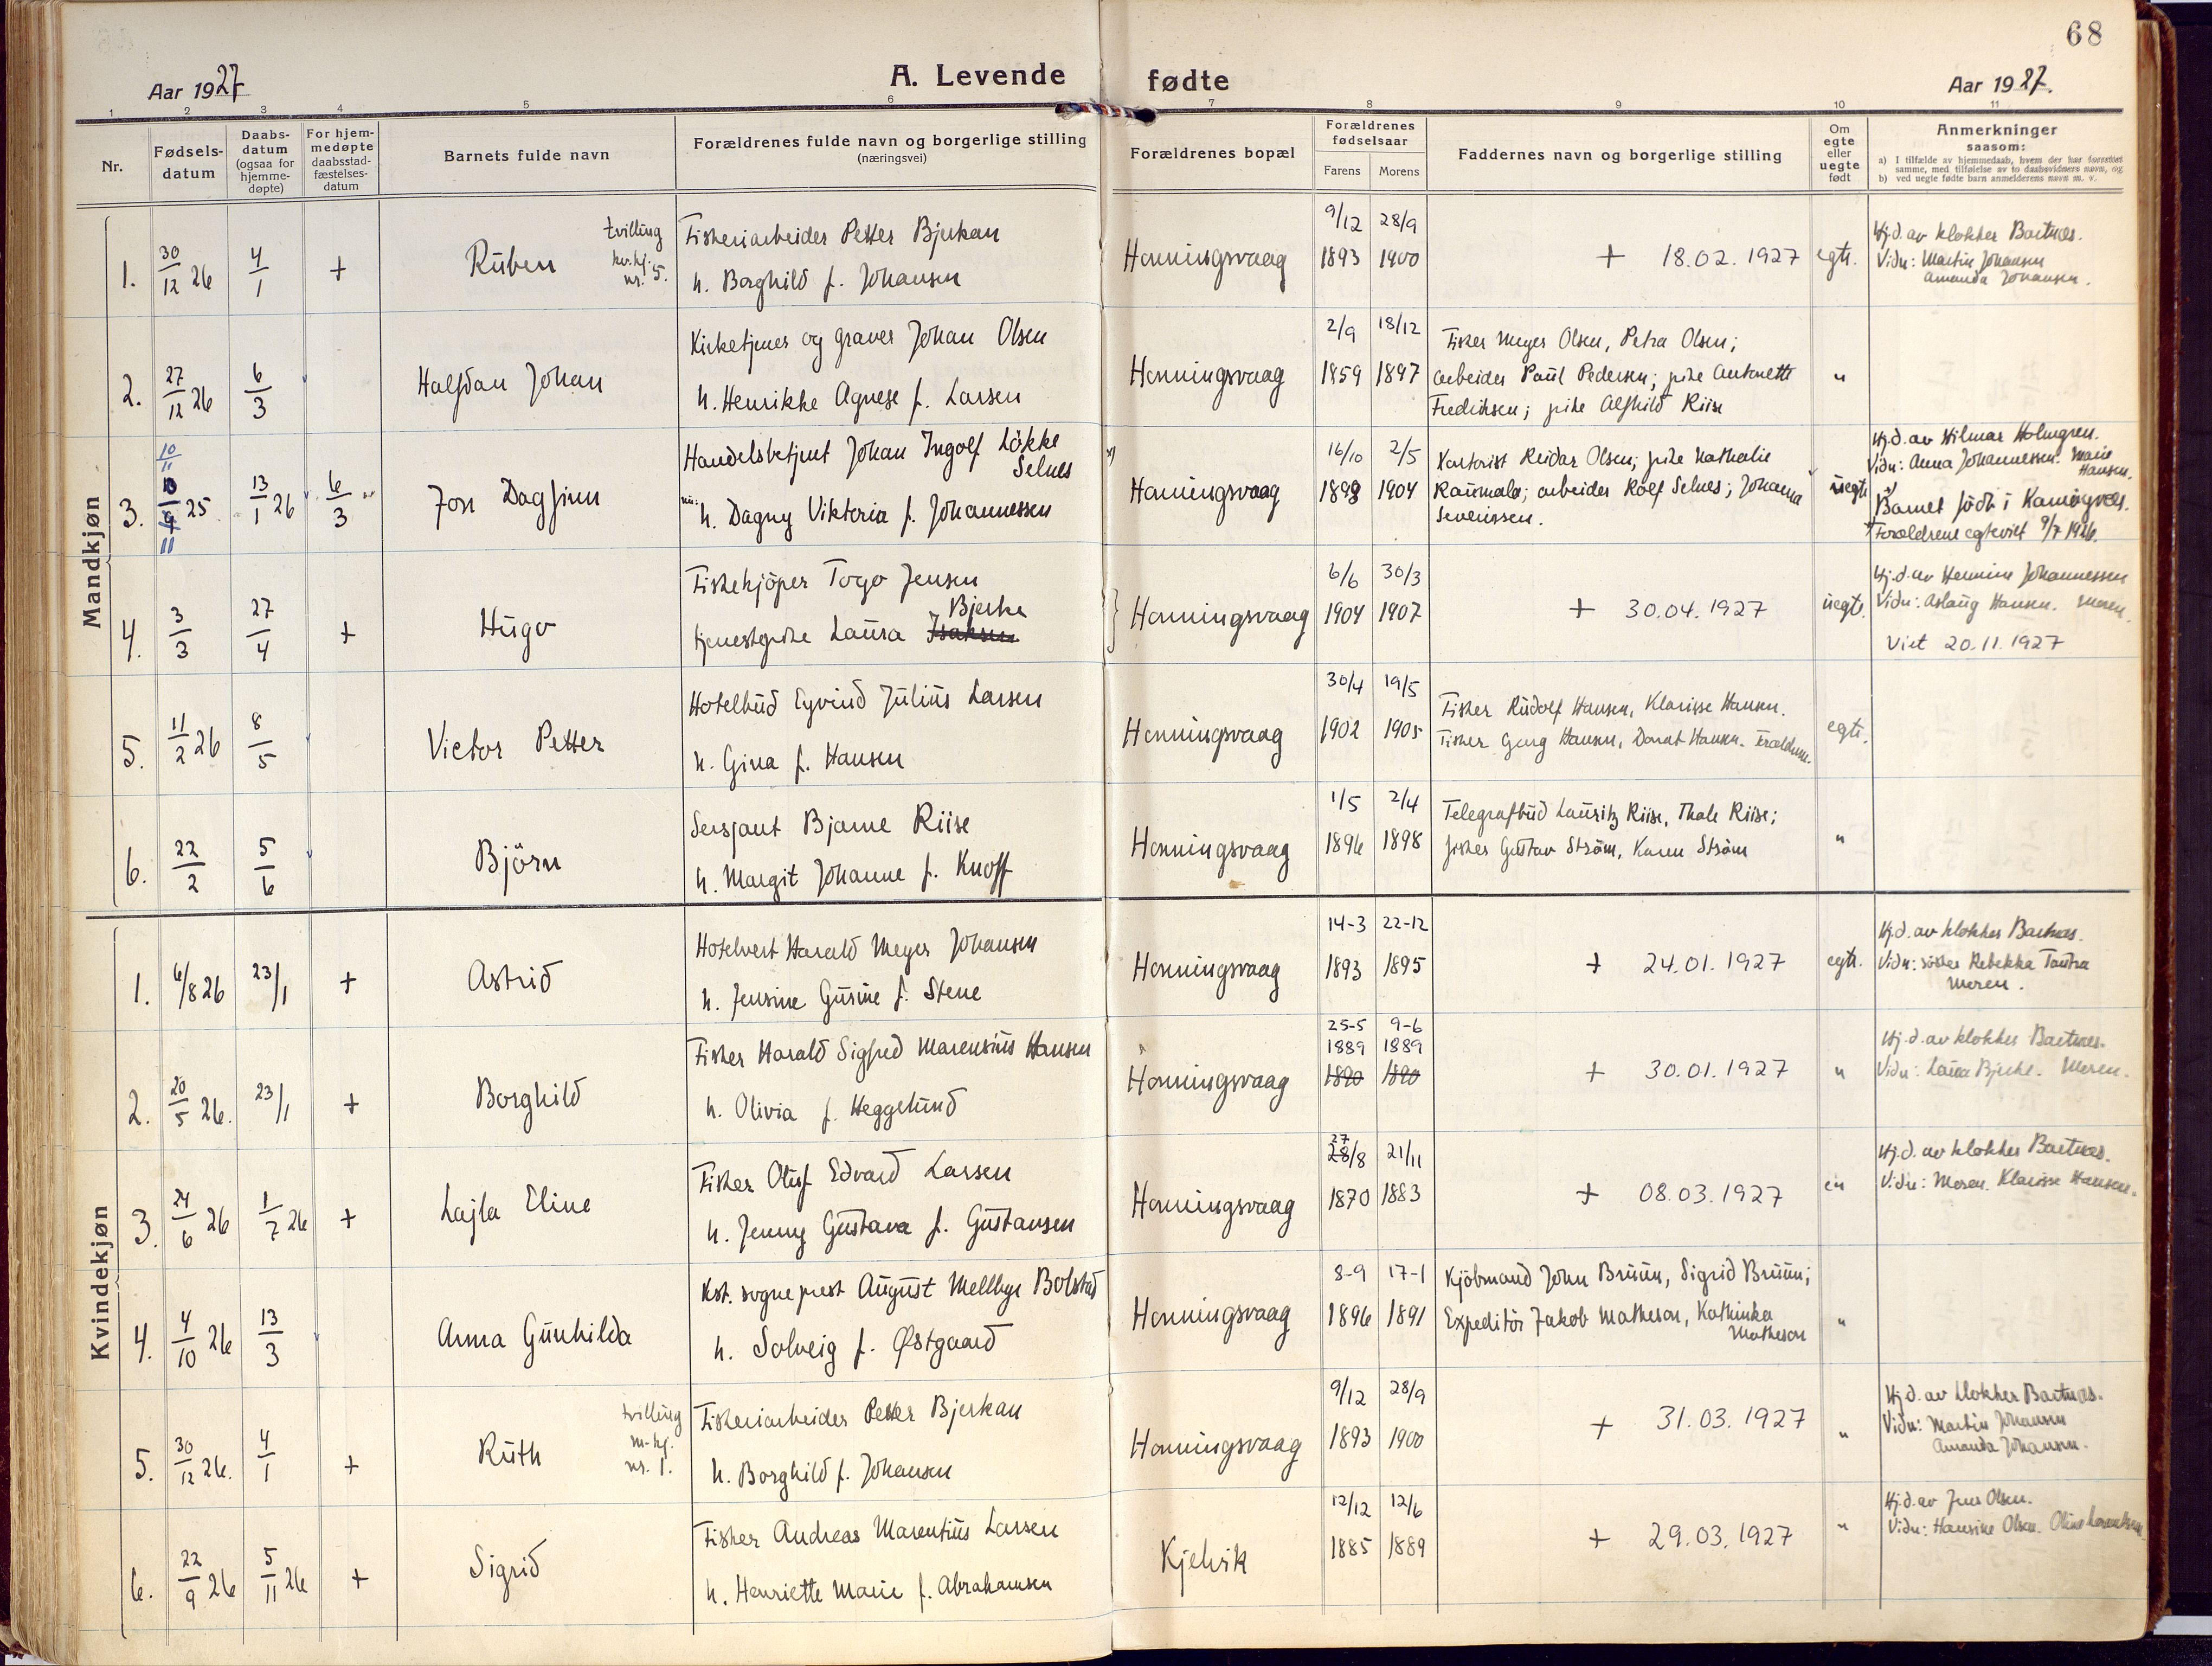 68
Aar 1927
A. Levende fødte
Aar 1927.
1 2 3 4 5 6 7 8 9 10 11
Nr.
Fødsels-
datum
Daabs-
datum
(ogsaa for
hjemme-
døpte)
For hjem-
medøpte
daabsstad-
fæstelses-
datum
Barnets fulde navn
Forældrenes fulde navn og borgerlige stilling
(næringsvei)
Forældrenes bopæl
Forældrenes
fødselsaar
Farens Morens
Faddernes navn og borgerlige stilling
Om
egte
eller
uegte
født
Anmerkninger
saasom:
a) I tilfælde av hjemmedaab, hvem der har forrettet
samme, med tilføielse av to daabsvidners navn, og
b) ved uegte fødte barn anmelderens navn m. v.
Mandkjøn
1. 30/12 26 4/1 + Ruben
tvilling
kv.kj.
nr. 5.
Fiskeriarbeider Petter Bjerkan
h. Borghild f. Johansen
Honningsvaag
9/12 28/9
1893 1900
+ 18.02.1927
egte.
Hj.d. av klokker Baetnes.
Vidn: Martin Johansen
Amanda Johansen.
2. 27/12 26 6/3 Halfdan Johan
Kirketjener og graver Johan Olsen
h. Henrikke Agnese f. Larsen
Honningsvaag
2/9 18/12
1859 1897
Fisker Meyer Olsen, Petra Olsen;
arbeider Paul Pedersen; pike Antonette
Fredriksen; pike Alfhild Riise
"
3. 10/11 25 13/1 26 6/3 Jon Dagfinn
Handelsbetjent Johan Ingolf Løkke
Selnes
h. Dagny Viktoria f. Johannessen
Honningsvaag
16/10 2/5
1898 1904
Kontorist Reidar Olsen; pike Nathalie
Raumala; arbeider Rolf Selnes; Johanna
Severinsen.
uegte
Hj.d. av Hilmar Holmgren.
Vidn: Anna Johannessen. Marie
Hansen.
Barnet født i Kamøyvær.
Forældrene egteviet 9/7 1926.
4. 3/3 27/4 + Hugo
Fiskekjøper Togo Jensen
Bjerke
tjenestepike Laura Isaksen
Honningsvaag
6/6 30/3
1904 1907
+ 30.04.1927
uegte.
Hj.d. av Hermine Johannessen
Vidn: Aslaug Hansen. Moren.
Viet 20.11.1927
5. 11/2 26 8/5 Victor Petter
Hotelbud Eyvind Julius Larsen
h. Gina f. Hansen
Honningsvaag
30/4 19/5
1902 1905
Fisker Rudolf Hansen, Klarisse Hansen.
Fisker Georg Hansen, Hansen. Forældrene.
egte.
6. 22/2 5/6 Björn
Sersjant Bjarne Riise
h. Margit Johanne f. Knoff
Honningsvaag
1/5 2/4
1896 1898
Telegrafbud Lauritz Riise, Thale Riise;
fisker Gustav Strøm, Karen Strøm
"
Kvindekjøn
1. 6/8 26 23/1 + Astrid
Hotelvert Harald Meyer Johansen
h. Jensine Gusine f. Stene
Honningsvaag
14-3 22-12
1893 1895
+ 24.01.1927
egte.
Hj.d. av klokker Baetnes.
Vidn: søster Rebekka Tautra
Moren.
2. 20/5 26. 23/1 + Borghild
Fisker Harald Sigfred Marensius Hansen
h. Olivia f. Heggelund
Honningsvaag
25-5 9-6
1889 1889
1890 1890
+ 30.01.1927
"
Hj.d. av klokker Baetnes.
Vidn: Laura Bjerke. Moren.
3. 24/6 26 1/7 26 + Lajla Eline
Fisker Oluf Edvard Larsen
h. Jenny Gustava f. Gustavsen
Honningsvaag
27
28/8 21/11
1870 1883
+ 08.03.1927
Hj.d. av klokker Baetnes.
Vidn: Moren. Klarisse Hansen.
4. 4/10 26 13/3 Anna Gunhilda
Kst. sogneprest August Mellbye Bolstad
h. Solveig f. Østgaard
Honningsvaag
8-9 17-1
1896 1891
Kjøbmand John Bruun, Sigrid Bruun;
Expeditör Jakob Matheson, Kathinka
Matheson
"
5. 30/12 26. 4/1 + Ruth
tvilling
m-kj.
nr. 1.
Fiskeriarbeider Petter Bjerkan
h. Borghild f. Johansen
Honningsvaag
9/12 28/9
1893 1900
+ 31.03.1927
"
Hj.d. av klokker Baetnes.
Vidn: Martin Johansen
Amanda Johansen.
6. 22/9 26 5/11 26 + Sigrid
Fisker Andreas Marentius Larsen
h. Henriette Marie f. Abrahamsen
Kjelvik
12/12 12/6
1885 1889
+ 29.03.1927
"
Hj.d. av Jens Olsen.
Vidn: Hansine Olsen. Oline